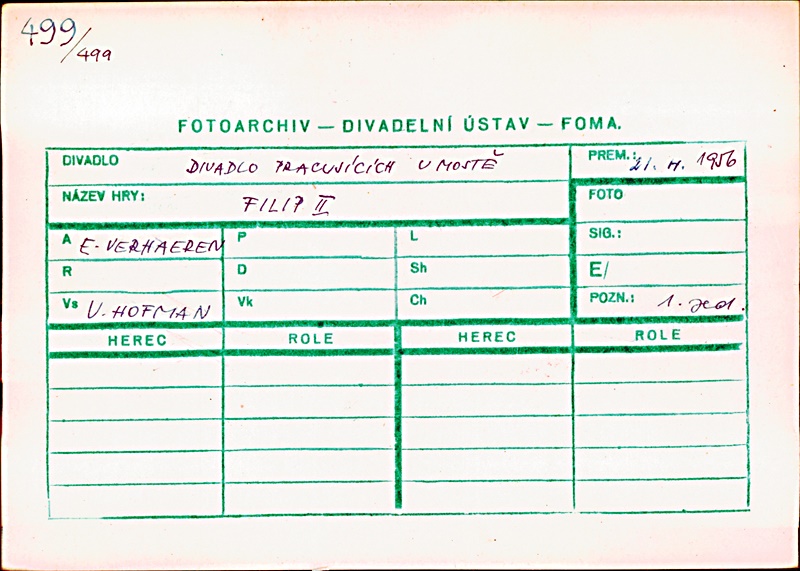 499/499
FOTOARCHIV — DIVADELNÍ ÚSTAV — FOMA.
DIVADLO DIVADLO PRACUJÍCÍCH V MOSTĚ PREM.: 21. 4. 1956
NÁZEV HRY: FILIP II FOTO
A E. VERHAEREN P L SIG.:
R D Sh E/
Vs V. HOFMAN Vk Ch POZN.: 1.
HEREC ROLE HEREC ROLE